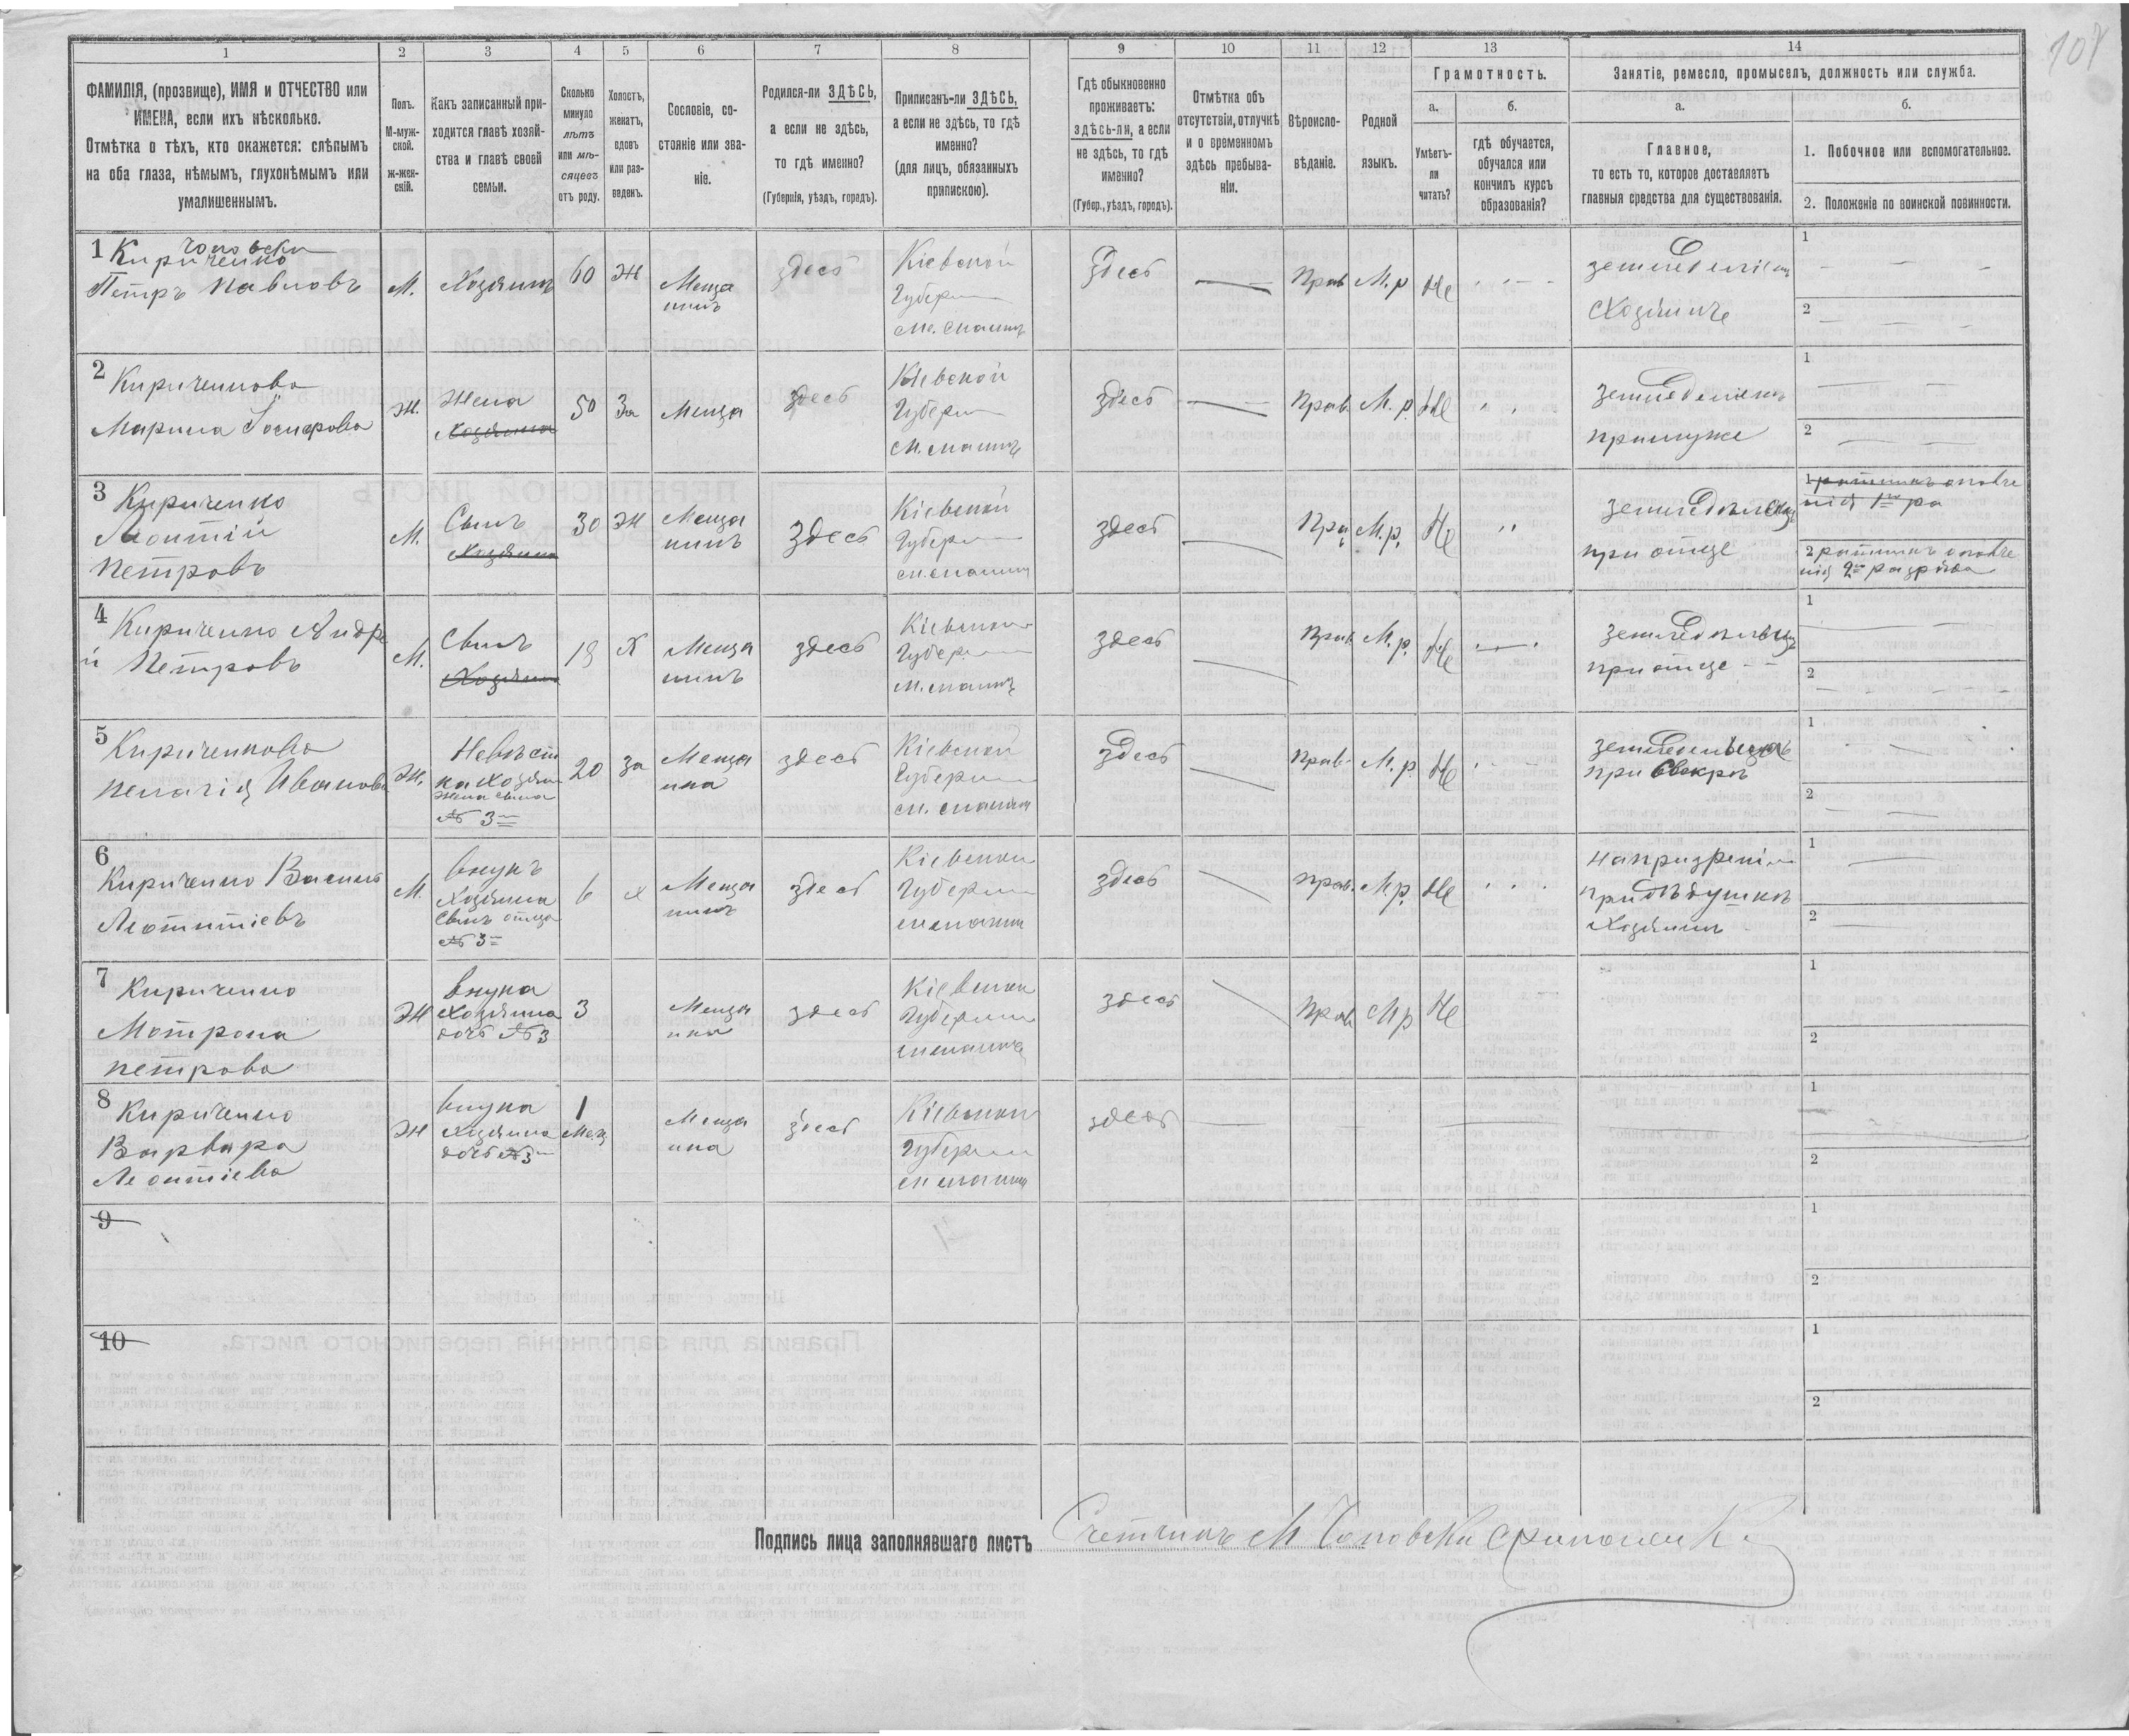 107
1 2 3 4 5 6 7 8 9 10 11 12 13 14
ФАМИЛІЯ, (прозвище), ИМЯ и ОТЧЕСТВО или
ИМЕНА, если ихъ нѣсколько.
Отмѣтка о тѣхъ, кто окажется: слѣпымъ
на оба глаза, нѣмымъ, глухонѣмымъ или
умалишеннымъ.
Полъ.
М-муж-
ской.
ж-жен-
скій.
Какъ записанный при-
ходится главѣ хозяй-
ства и главѣ своей
семьи.
Сколько
минуло
лѣтъ
или мѣ-
сяцевъ
отъ роду.
Холостъ,
женатъ,
вдовъ
или раз-
веденъ.
Сословіе, со-
стояніе или зва-
ніе.
Родился-ли ЗДѢСЬ,
а если не здѣсь,
то гдѣ именно?
(Губернія, уѣздъ, городъ).
Приписанъ-ли ЗДѢСЬ,
а если не здѣсь, то гдѣ
именно?
(для лицъ, обязанныхъ
припискою).
Гдѣ обыкновенно
проживаетъ:
здѣсь-ли, а если
не здѣсь, то гдѣ
именно?
(Губер., уѣздъ, городъ).
Отмѣтка объ
отсутствіи, отлучкѣ
и о временномъ
здѣсь пребыва-
ніи.
Вѣроиспо-
вѣданіе.
Родной
языкъ.
Грамотность.
а.
Умѣетъ-
ли
читать?
б.
гдѣ обучается,
обучался или
кончилъ курсъ
образованія?
Занятіе, ремесло, промыселъ, должность или служба.
а.
Главное,
то есть то, которое доставляетъ
главныя средства для существованія.
б.
1. Побочное или вспомогательное.
2. Положеніе по воинской повинности.
1 Кириченко
Петръ Павловъ
М. Хозяинъ 60 Ж
Меща
нинъ
здесь
Кіевской
Губерн
здесь
Прав М.р Не
Хозяинъ
1
2
2 Кириченкова
Марина
Ж. Жена
Хозяина
50 За Меща здесь
Кіевской
Губерн
здесь
Прав. М.р. Не
1
2
3 Кириченко
Леонтій
Петровъ
М. Сынъ
Хозяина
30 Ж
Меща
нинъ
здесь
Кіевской
Губерн
здесь
Пра
в
М.р. Не
при отце
1
2 ратникъ ополче
нія 2го разряда
4 Кириченко Андре
й Петровъ
М. Сынъ
Хозяина
Х
Меща
нинъ
здесь
Губерн
здесь
Прав. М.р. Не
при отце
1
2
5 Кириченкова
Пелагія Иванова
Ж. Невѣст
ка Хозяи
жена сына
№ 3
20 За
Меща
нка
здесь
Кіевской
Губерн
здесь
Прав. М.р Не
при свекрѣ
1
2
6
Кириченко Василь
Леонтіевъ
М. внукъ
Хозяина
сынъ отца
№ 3
6 х
Меща
нинъ
здесь
Губерн
здесь
прав. М.р. Не
на призреніи
при дѣдушкѣ
Хозяинъ
1
2
7 Кириченко
Мотрона
Петрова
Ж внука
Хозяина
дочь № 3
3
Меща
нка
здесь
Губерн
здесь
Прав М р Не
1
2
8
Кириченко
Варвара
Леонтіева
Ж внука
Хозяина
дочь № 3
1
Мец
Меща
нка
здесь
Губерн
здесь
1
2
9
1
2
10
1
2
Подпись лица заполнявшаго листъ Счетчикъ М